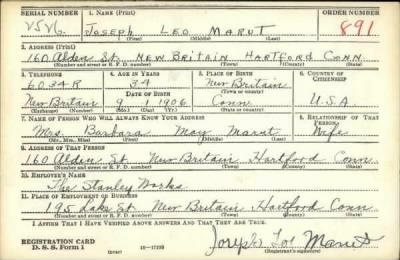 SERIAL NUMBER 1. NAME (Print) ORDER NUMBER
V542 JOSEPH LEO MARUT 891
(First) (Middle) (Last)
2. ADDRESS (Print)
160 Alden St. NEW BRITAIN HARTFORD CONN.
(Number and street or R. F. D. number) (Town) (County) (State)
3. TELEPHONE 4. AGE IN YEARS 5. PLACE OF BIRTH 6. COUNTRY OF CITIZENSHIP
6034R 34 New Britain
DATE OF BIRTH (Town or county)
New Britain 9 1906 Conn. U.S.A
(Exchange) (Number) (Mo.) (Day) (Yr.) (State or country)
7. NAME OF PERSON WHO WILL ALWAYS KNOW YOUR ADDRESS 8. RELATIONSHIP OF THAT PERSON
Mrs. Barbara May Marut Wife
(Mr., Mrs., Miss) (First) (Middle) (Last)
9. ADDRESS OF THAT PERSON
160 Alden St. New Britain Hartford Conn.
(Number and street or R. F. D. number) (Town) (County) (State)
10. EMPLOYER'S NAME
The Stanley Works
11. PLACE OF EMPLOYMENT OR BUSINESS
195 Lake St New Britain Hartford Conn.
(Number and street or R. F. D. number) (Town) (County) (State)
I AFFIRM THAT I HAVE VERIFIED ABOVE ANSWERS AND THAT THEY ARE TRUE.
REGISTRATION CARD
D. S. S. Form 1 (over) 16—17105 Joseph Leo Marut
(Registrant's signature)